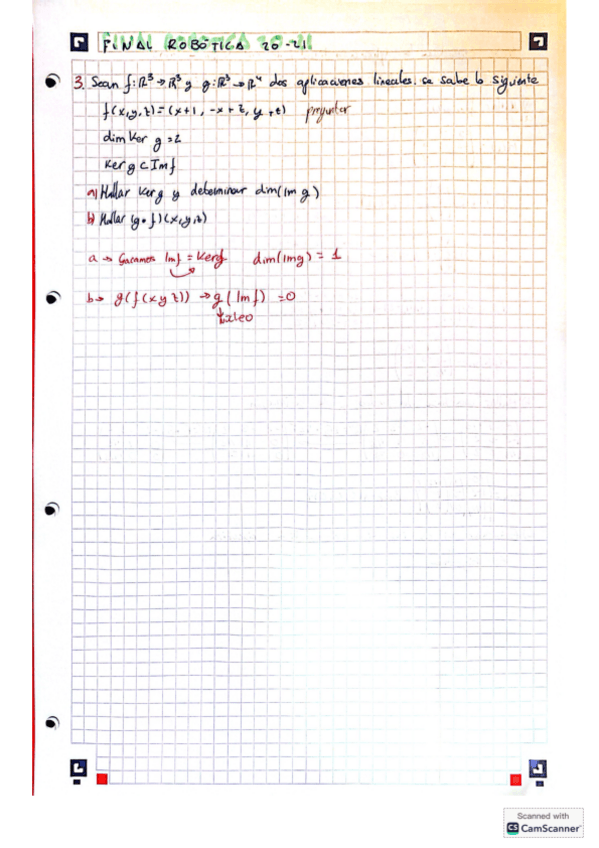 FINAL ROBÓTICA 20-21
3. Sean f: R³ → R³ y g: R³ → R⁴ dos aplicaciones lineales. se sabe lo siguiente
f(x,y,z) = (x+1, -x+z, y+z) preguntar
dim Ker g = 2
Ker g ⊂ Im f
a) Hallar Ker g y determinar dim(Im g)
b) Hallar (g∘f)(x,y,z)
a → Sacamos Im f = Ker g dim(Img) = 1
b → g(f(x y z)) → g(Im f) = 0
Scanned with
CS CamScanner